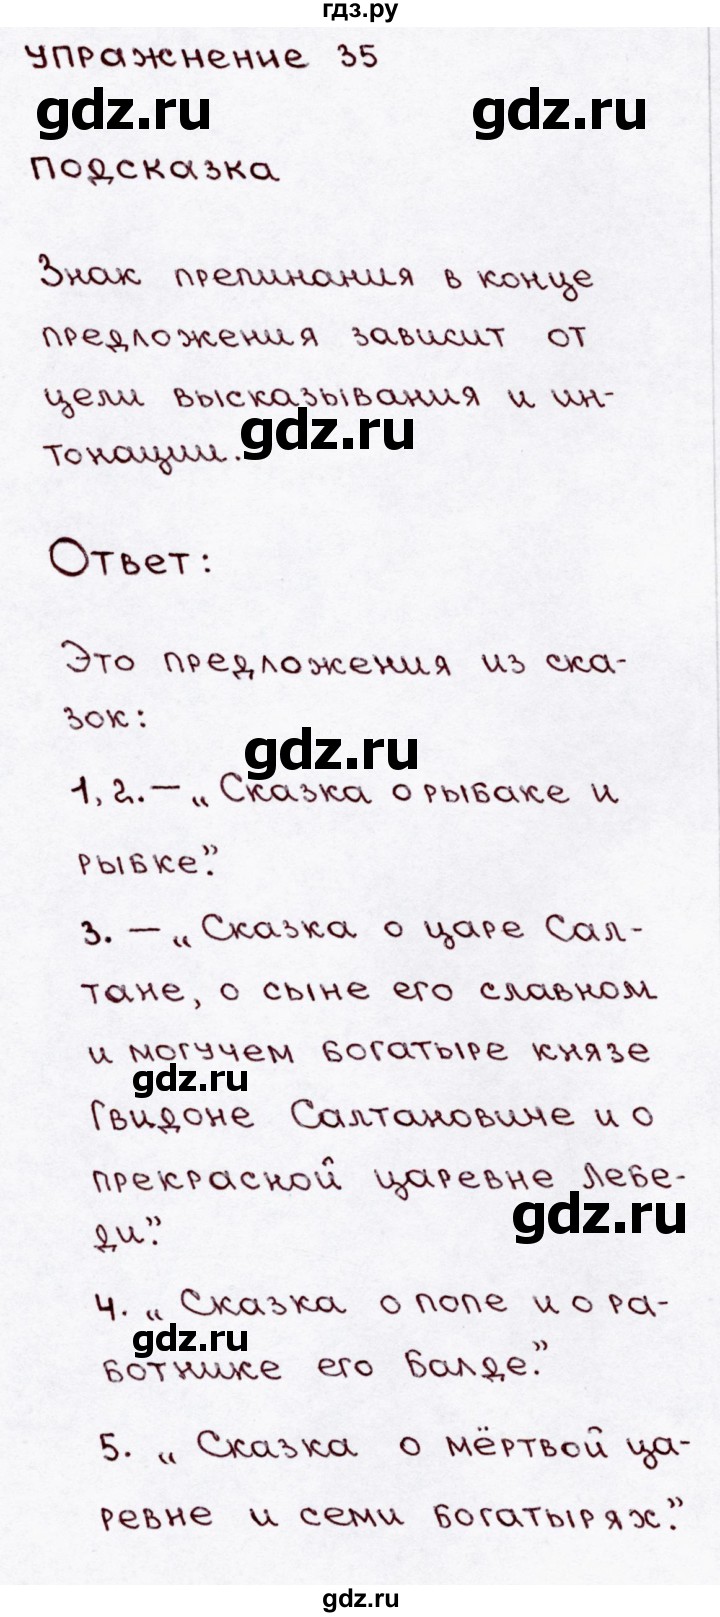 гдз.ру
упражнение 35
gdz.ru gdz.ru
подсказка
Знак препинания в конце
предложения зависит от
цели высказывания и ин-
тонации.
gdz.ru
Ответ:
Это предложения из ска-
зок:
gdz.ru
1, 2. – „Сказка о рыбаке и
рыбке”.
3. – „Сказка о царе Сал-
тане, о сыне его славном
и могучем богатыре князе
gdz.ru
Гвидоне Салтановиче и о
прекрасной царевне Лебе-
gdz.ru
ди”.
4. „Сказка о попе и о ра-
gdz.ru
ботнике его Балде”.
5. „Сказка о мёртвой ца-
ревне и семи богатырях”.
gdz.ru